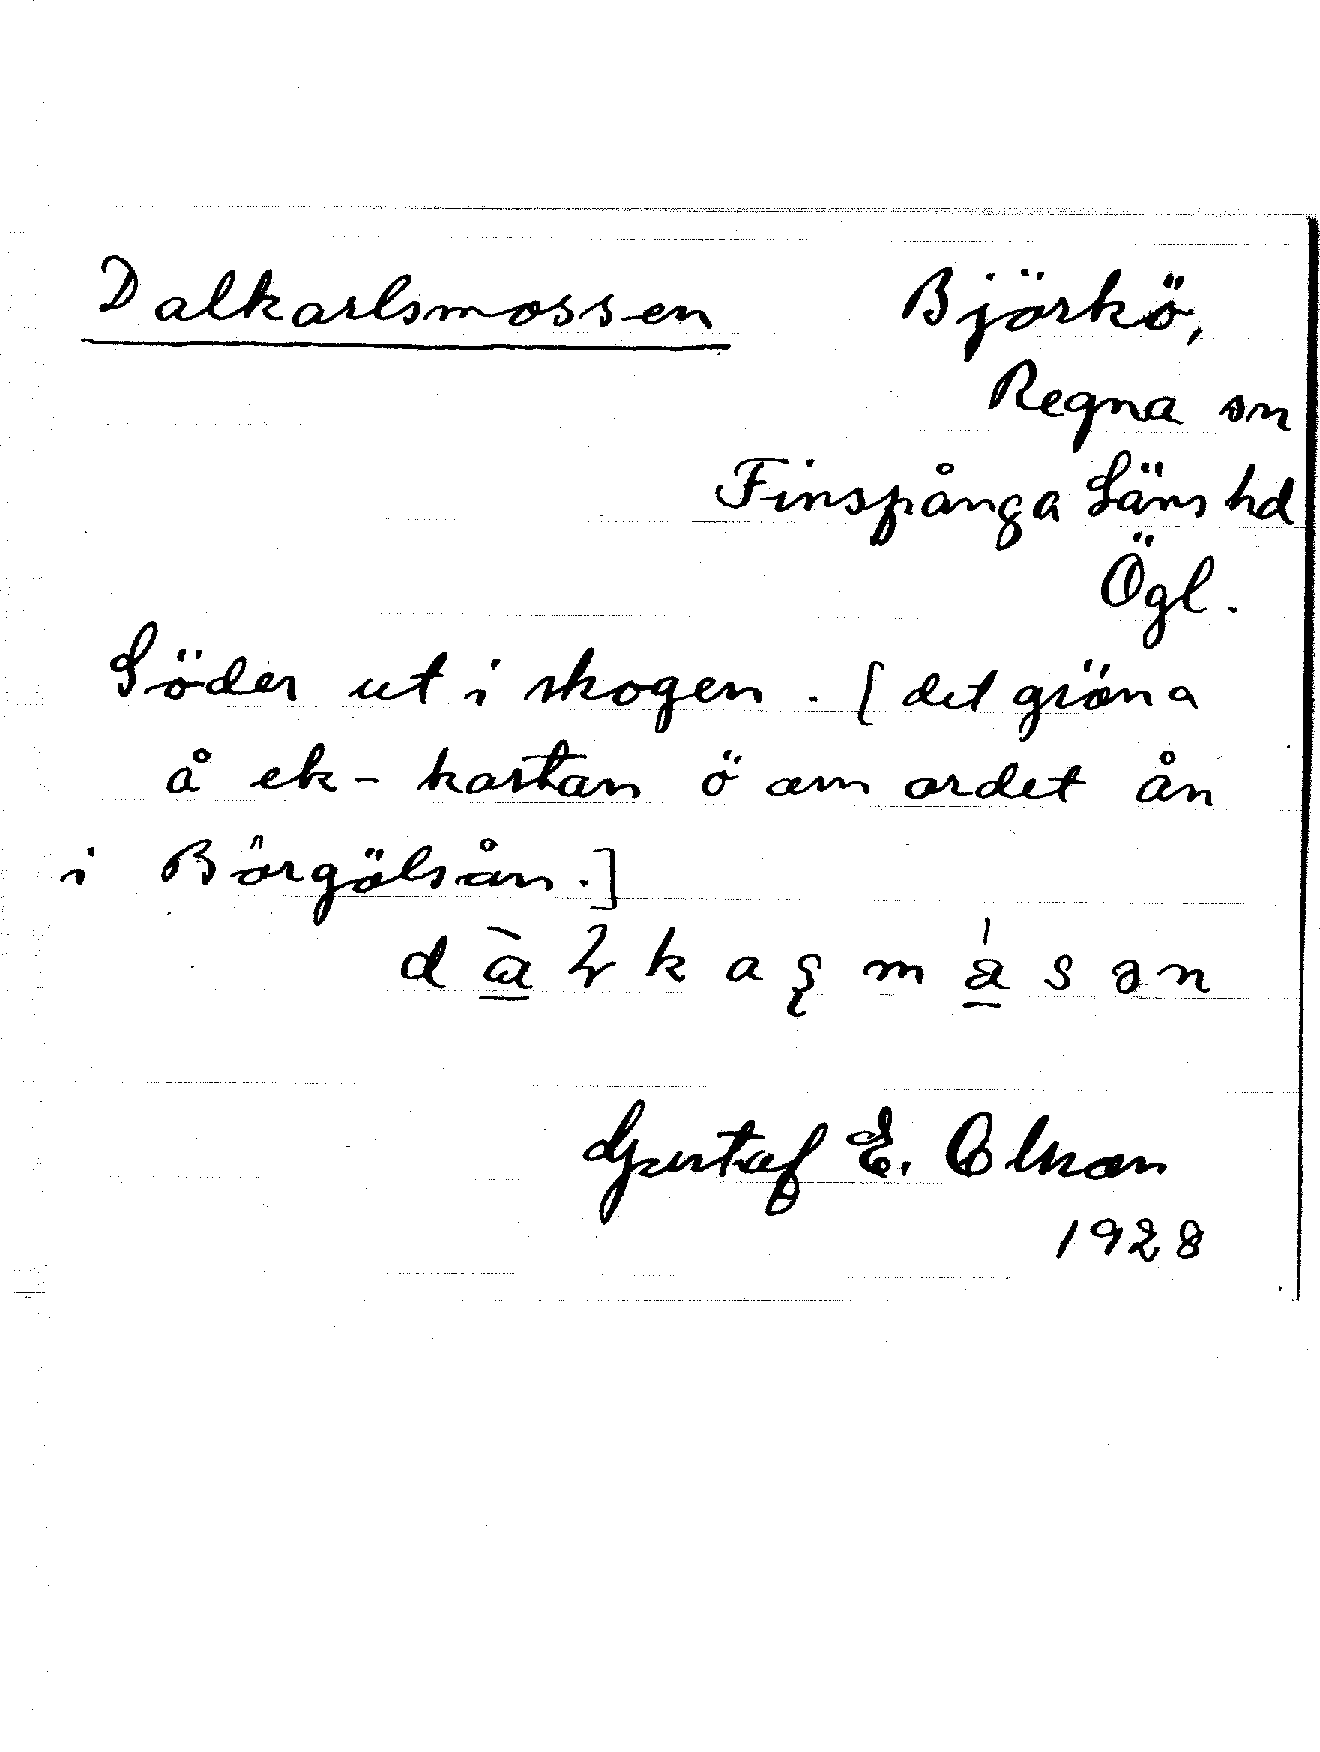 Dalkarlsmossen Björkö,
Regna sn
Finspånga Läns hd
Ögl.
Söder ut i skogen. [det gröna
å ek-kartan ö om ordet ån
i Börgölsån.]
Gustaf E. Olson
1928